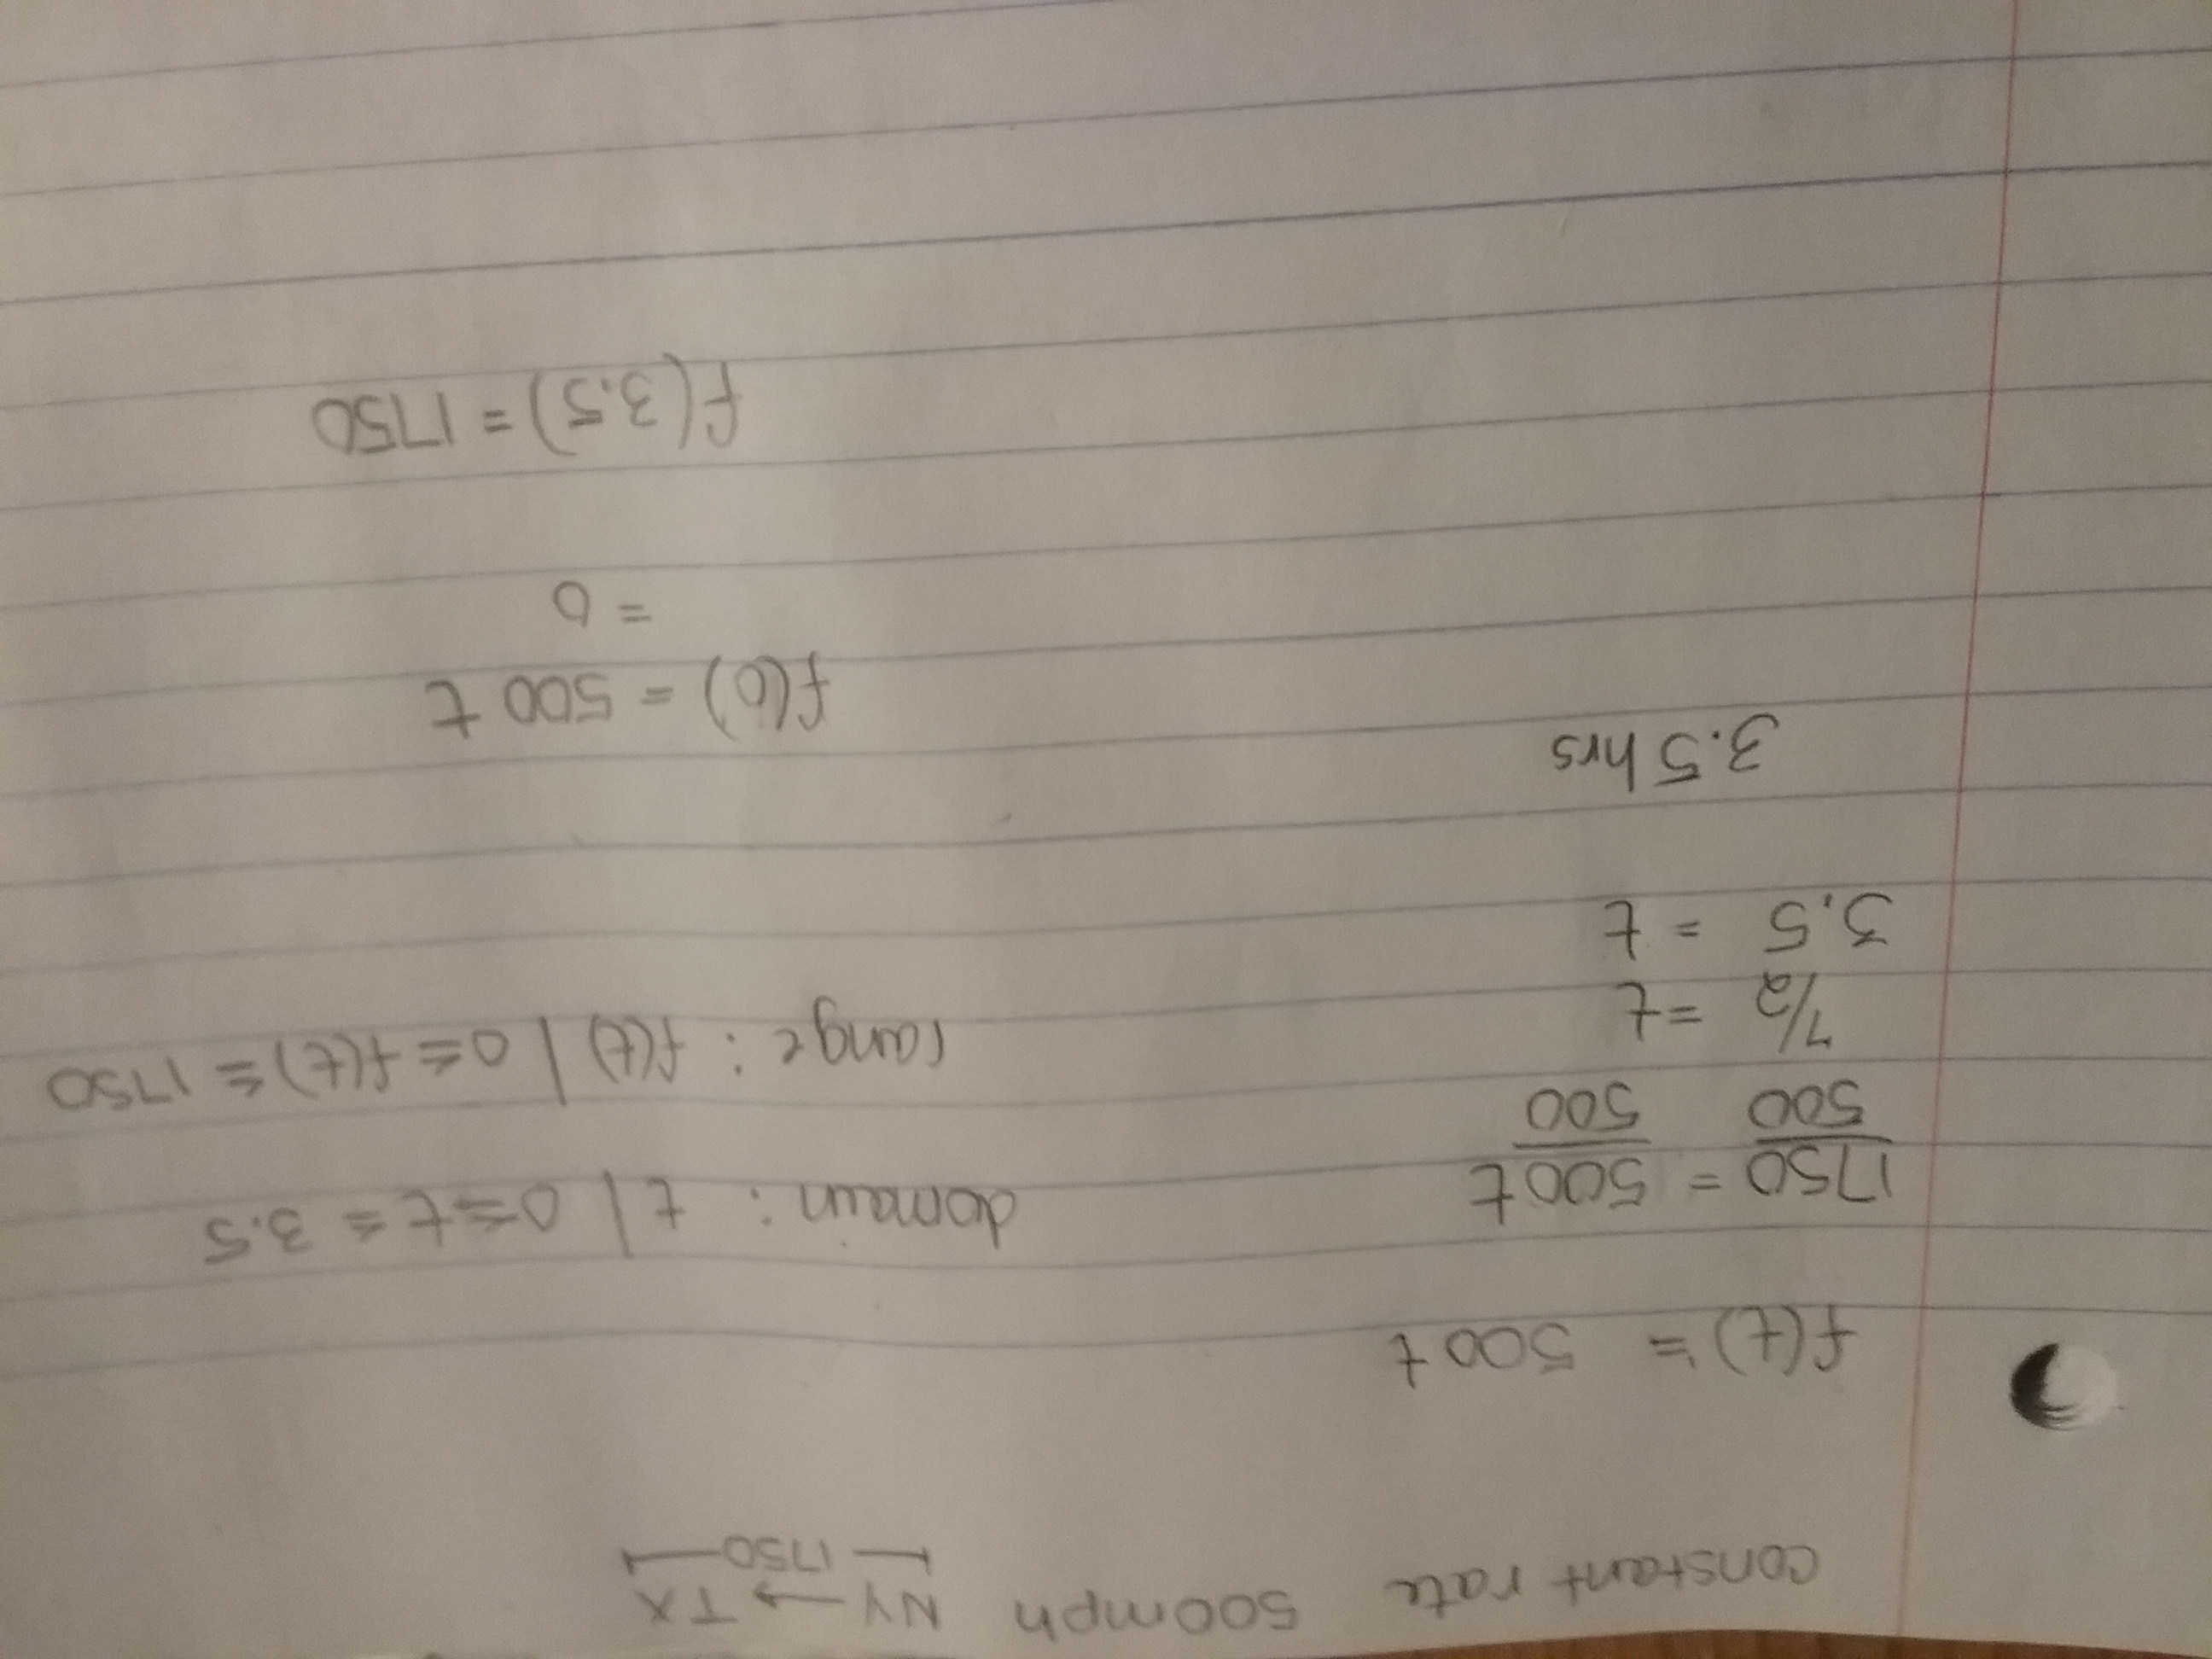 constant rate 500mph NY → TX
1750
f(t) = 500t
1750 = 500t
500 500
7/2 = t
3.5 = t
3.5 hrs
domain: t | 0 ≤ t ≤ 3.5
range: f(t) | 0 ≤ f(t) ≤ 1750
f(0) = 500 t
= 0
f(3.5) = 1750